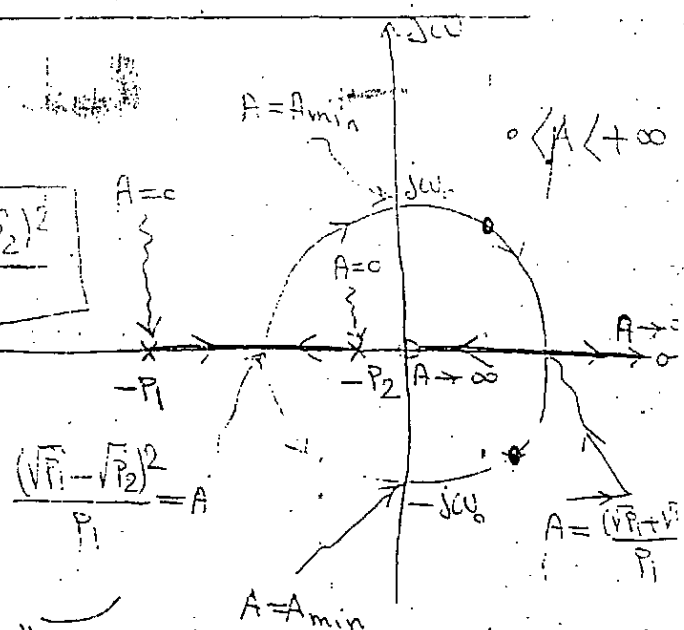 jω
A = Amin
0 < A < +∞
A=0
jω₀
₂)²
A=0
A→
-P₁
-P₂
A→∞
(√P₁-√P₂)²/P₁ = A
-jω₀
A = (√P₁+√
P₁
A = Amin